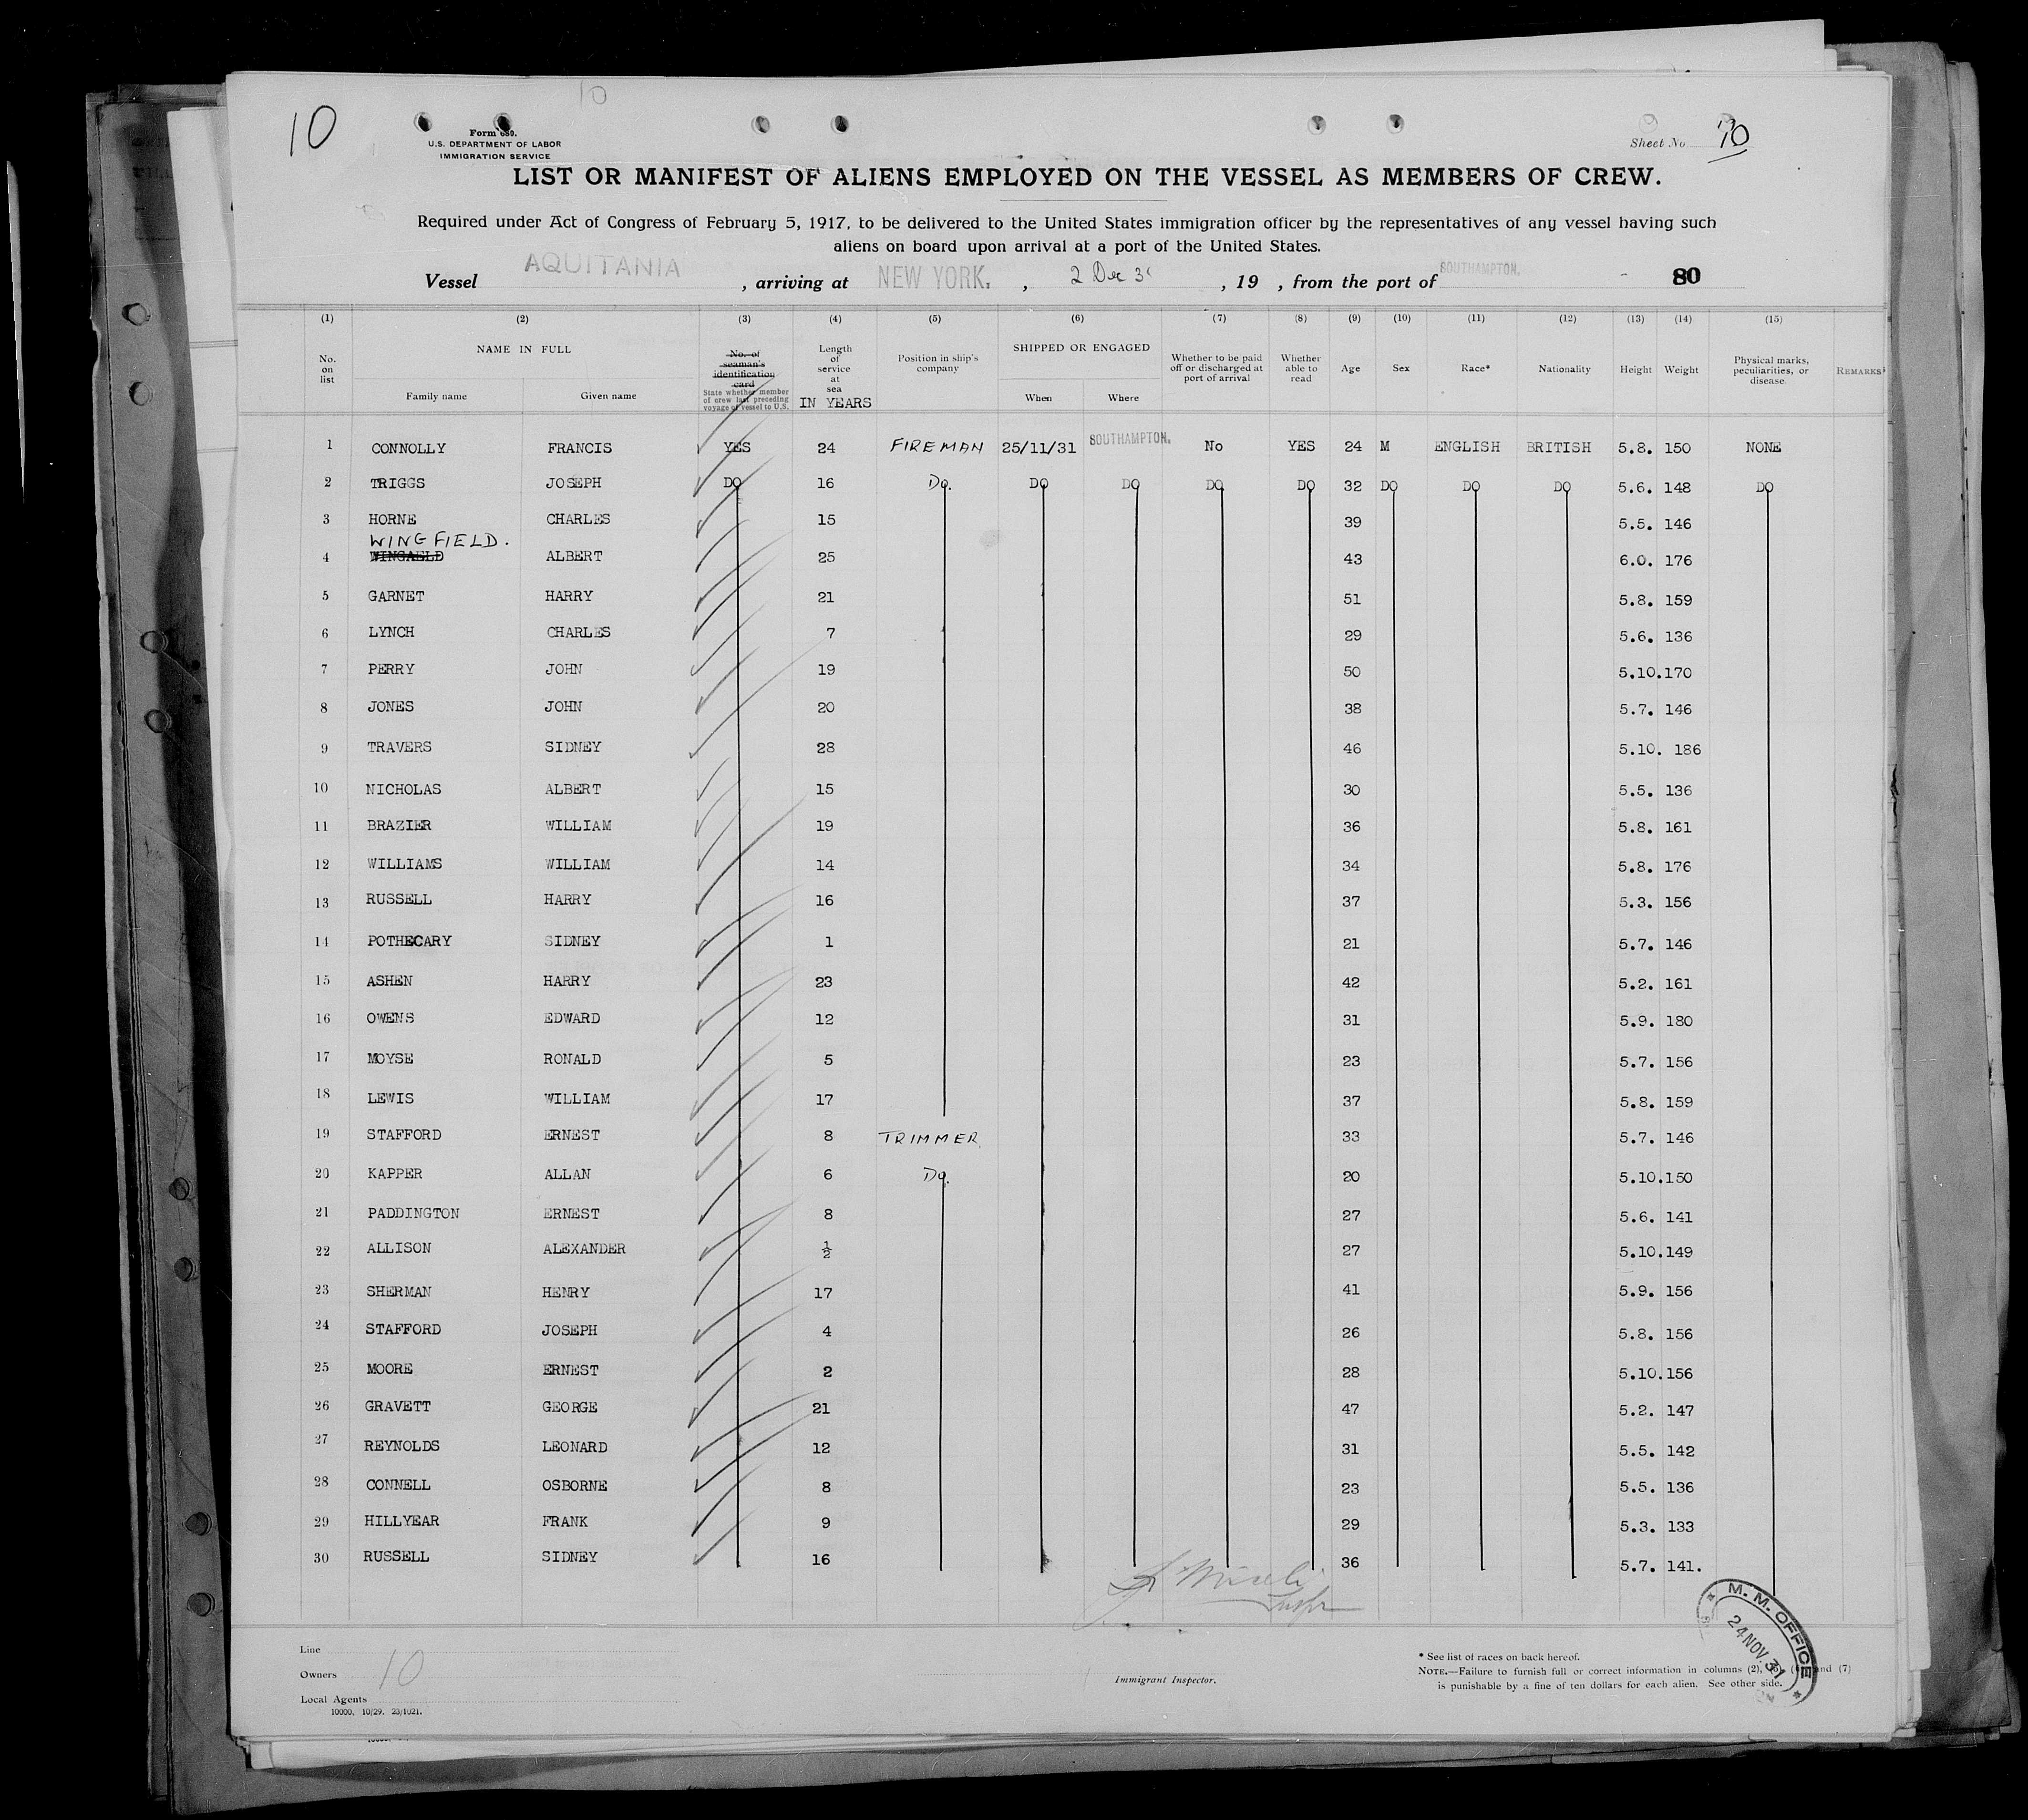 10
10
Form 680.
U.S. DEPARTMENT OF LABOR
IMMIGRATION SERVICE
Sheet No 10
LIST OR MANIFEST OF ALIENS EMPLOYED ON THE VESSEL AS MEMBERS OF CREW.
Required under Act of Congress of February 5, 1917, to be delivered to the United States immigration officer by the representatives of any vessel having such
aliens on board upon arrival at a port of the United States.
Vessel AQUITANIA, arriving at NEW YORK., 2 Dec 31, 19 , from the port of SOUTHAMPTON. 80
(1) (2) (3) (4) (5) (6) (7) (8) (9) (10) (11) (12) (13) (14) (15)
No. on list
NAME IN FULL
Family name Given name
No. of seaman's identification card
State whether member of crew last preceding voyage of vessel to U.S.
Length of service at sea IN YEARS
Position in ship's company
SHIPPED OR ENGAGED
When Where
Whether to be paid off or discharged at port of arrival
Whether able to read
Age Sex Race* Nationality Height Weight
Physical marks, peculiarities, or disease
REMARKS
1 CONNOLLY FRANCIS YES 24 FIREMAN 25/11/31 SOUTHAMPTON. No YES 24 M ENGLISH BRITISH 5.8. 150 NONE
2 TRIGGS JOSEPH DO 16 Do. DO DO DO DO 32 DO DO DO 5.6. 148 DO
3 HORNE CHARLES 15 39 5.5. 146
WINGFIELD.
4 WINGAELD ALBERT 25 43 6.0. 176
5 GARNET HARRY 21 51 5.8. 159
6 LYNCH CHARLES 7 29 5.6. 136
7 PERRY JOHN 19 50 5.10. 170
8 JONES JOHN 20 38 5.7. 146
9 TRAVERS SIDNEY 28 46 5.10. 186
10 NICHOLAS ALBERT 15 30 5.5. 136
11 BRAZIER WILLIAM 19 36 5.8. 161
12 WILLIAMS WILLIAM 14 34 5.8. 176
13 RUSSELL HARRY 16 37 5.3. 156
14 POTHECARY SIDNEY 1 21 5.7. 146
15 ASHEN HARRY 23 42 5.2. 161
16 OWENS EDWARD 12 31 5.9. 180
17 MOYSE RONALD 5 23 5.7. 156
18 LEWIS WILLIAM 17 37 5.8. 159
19 STAFFORD ERNEST 8 TRIMMER 33 5.7. 146
20 KAPPER ALLAN 6 Do. 20 5.10. 150
21 PADDINGTON ERNEST 8 27 5.6. 141
22 ALLISON ALEXANDER ½ 27 5.10. 149
23 SHERMAN HENRY 17 41 5.9. 156
24 STAFFORD JOSEPH 4 26 5.8. 156
25 MOORE ERNEST 2 28 5.10. 156
26 GRAVETT GEORGE 21 47 5.2. 147
27 REYNOLDS LEONARD 12 31 5.5. 142
28 CONNELL OSBORNE 8 23 5.5. 136
29 HILLYEAR FRANK 9 29 5.3. 133
30 RUSSELL SIDNEY 16 36 5.7. 141.
M. M. OFFICE
24 NOV. 31
Line
Owners 10
Local Agents
10000, 10/29. 23/1021.
Immigrant Inspector.
* See list of races on back hereof.
NOTE.—Failure to furnish full or correct information in columns (2), and (7)
is punishable by a fine of ten dollars for each alien. See other side.